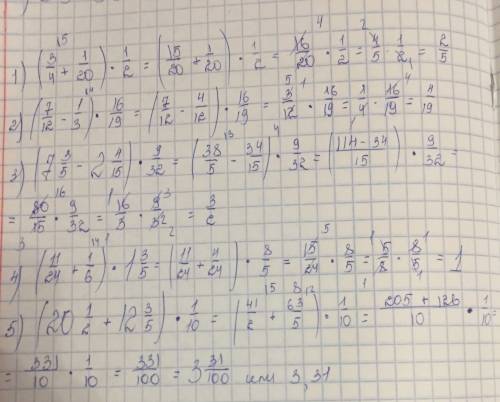 1) (3/4 + 1/20) · 1/2 = (15/20 + 1/20) · 1/2 = 16/20 · 1/2 = 4/5 · 1/2 = 2/5
2) (7/12 - 1/3) · 16/19 = (7/12 - 4/12) · 16/19 = 3/12 · 16/19 = 1/4 · 16/19 = 4/19
3) (7 3/5 - 2 4/15) · 9/32 = (38/5 - 34/15) · 9/32 = (114-34/15) · 9/32 =
= 80/15 · 9/32 = 16/3 · 9/32 = 3/2
4) (11/24 + 1/6) · 1 3/5 = (11/24 + 4/24) · 8/5 = 15/24 · 8/5 = 5/8 · 8/5 = 1
5) (20 1/2 + 12 3/5) · 1/10 = (41/2 + 63/5) · 1/10 = 205 + 126/10 · 1/10 =
= 331/10 · 1/10 = 331/100 = 3 31/100 или 3,31